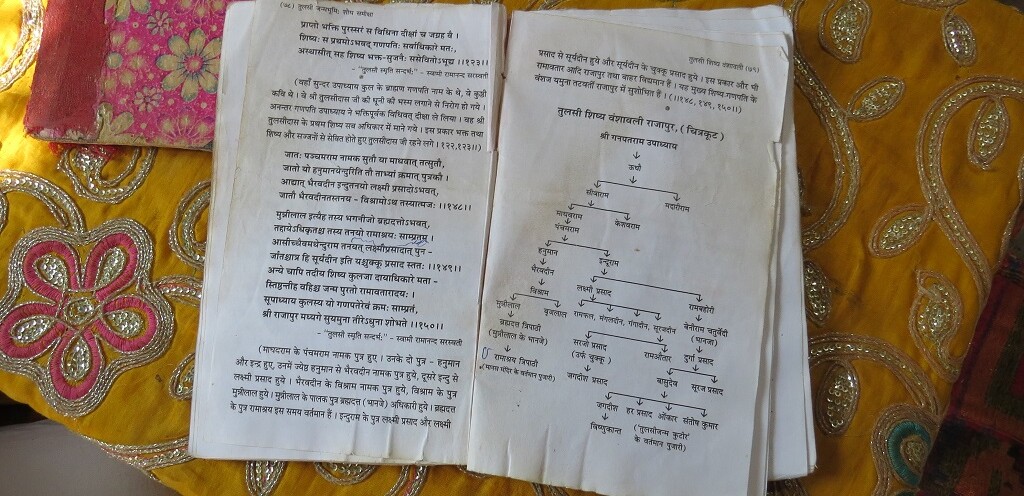 (७८) तुलसी जन्मभूमि: शोध समीक्षा
प्राप्तो भक्ति पुरस्सरं स विधिना दीक्षां च जग्रह वै ।
शिष्य: स प्रथमोऽभवद् गणपति: सर्वाधिकारे मत:,
अस्थासीत् सह शिष्य भक्त-सुजनै:
।।१२३।।
-"तुलसी स्मृति सन्दर्भ:" - स्वामी रामानन्द सरस्वती
(वहाँ सुन्दर उपाध्याय कुल के ब्राह्मण गणपति नाम के थे, ये कुष्ठी
कवि थे । वे श्री तुलसीदास जी की धूनी की भस्म लगाने से निरोग हो गये ।
अनन्तर गणपति उपाध्याय ने भक्तिपूर्वक विधिवत् दीक्षा ले लिया । वह श्री
तुलसीदास के प्रथम शिष्य सब अधिकार में माने गये । इस प्रकार भक्त तथा
शिष्य और सज्जनों से सेवित होते हुए तुलसीदास जी रहने लगे ।१२२,१२३।।)
जात: पञ्चमराम नामक सुतो या माधवात् तत्सुतौ,
जातो यो हनुमानथेन्दुरिति तौ ताभ्यां क्रमात् पुत्रकौ ।
आद्यात् भैरवदीन इन्दुतनयो लक्ष्मी प्रसादोऽभवत्,
जातौ भैरवदीनतस्तनय - विश्रामोऽथ तस्यात्मज: ।।१४८।।
मुन्नीलाल इत्येह तस्य भगनीजो ब्रह्मदत्तोऽभवत्,
तहायेऽधिकृतश्च तस्य तनयो रामाश्रय: साम्प्रतम् ।
आसीच्चैवमथेन्दुराम तनयत् लक्ष्मीप्रसादात् पुन -
र्जातश्चात्र हि सूर्यदीन इति यश्चुक्कू प्रसाद स्तत: ।।१४९।।
अन्ये चापि तदीय शिष्य कुलजा दायाधिकारे मता -
स्तिष्ठन्तीह वहिश्च जन्म पुरतो रामावतारादय: ।
सूपाध्याय कुलस्य यो गणपतेरेवं क्रम: साम्प्रतं,
श्री राजापुर मध्यगे सुयमुना तीरेऽधुना शोभते ।।१५०।।
-"तुलसी स्मृति सन्दर्भ:" - स्वामी रामानन्द सरस्वती
(माधवराम के पंचमराम नामक पुत्र हुए । उनके दो पुत्र - हनुमान
और इन्द्र हुए, उनमें ज्येष्ठ हनुमान से भैरवदीन नामक पुत्र हुये, दूसरे इन्दु से
लक्ष्मी प्रसाद हुये । भैरवदीन के विश्राम नामक पुत्र हुये, विश्राम के पुत्र
मुन्नीलाल हुये । मुन्नीलाल के पालक पुत्र ब्रह्मदत्त (भानजे) अधिकारी हुये । ब्रह्मदत्त
के पुत्र रामाश्रय इस समय वर्तमान हैं । इन्दुराम के पुत्र लक्ष्मी प्रसाद और लक्ष्मी
तुलसी शिष्य वंशावली (७९)
प्रसाद से सूर्यदीन हुये और सूर्यदीन के चुक्कू प्रसाद हुये । इस प्रकार और भी
रामावतार आदि राजापुर तथा बाहर विद्यमान हैं । यह मुख्य शिष्य गणपति के
वंशज यमुना तटवर्ती राजापुर में सुशोभित हैं । (।१४८, १४९, १५०।।)
तुलसी शिष्य वंशावली राजापुर, (चित्रकूट)
श्री गनपतराम उपाध्याय
ऊधौ
सीवाराम मदारीराम
माधवराम केशवराम
पंचमराम
हनुमान इन्दूराम
भैरवदीन लक्ष्मी प्रसाद रामबहोरी
विश्राम
मुन्नीलाल बृजलाल रामफल, मंगलदीन, गंगादीन, सूरजदीन बेनीराम चतुर्वेदी
ब्रह्मदत्त त्रिपाठी सरजी प्रसाद रामऔतार दुर्गा प्रसाद
(मुन्नीलाल के भानजे) (उर्फ चुक्कू)
रामाश्रय त्रिपाठी जगदीश प्रसाद बासुदेव सूरज प्रसाद
(मानस मंदिर के वर्तमान पुजारी)
जगदीश हर प्रसाद ओंकार संतोष कुमार
बिष्णुकान्त ('तुलसीजन्म कुटीर'
के वर्तमान पुजारी)